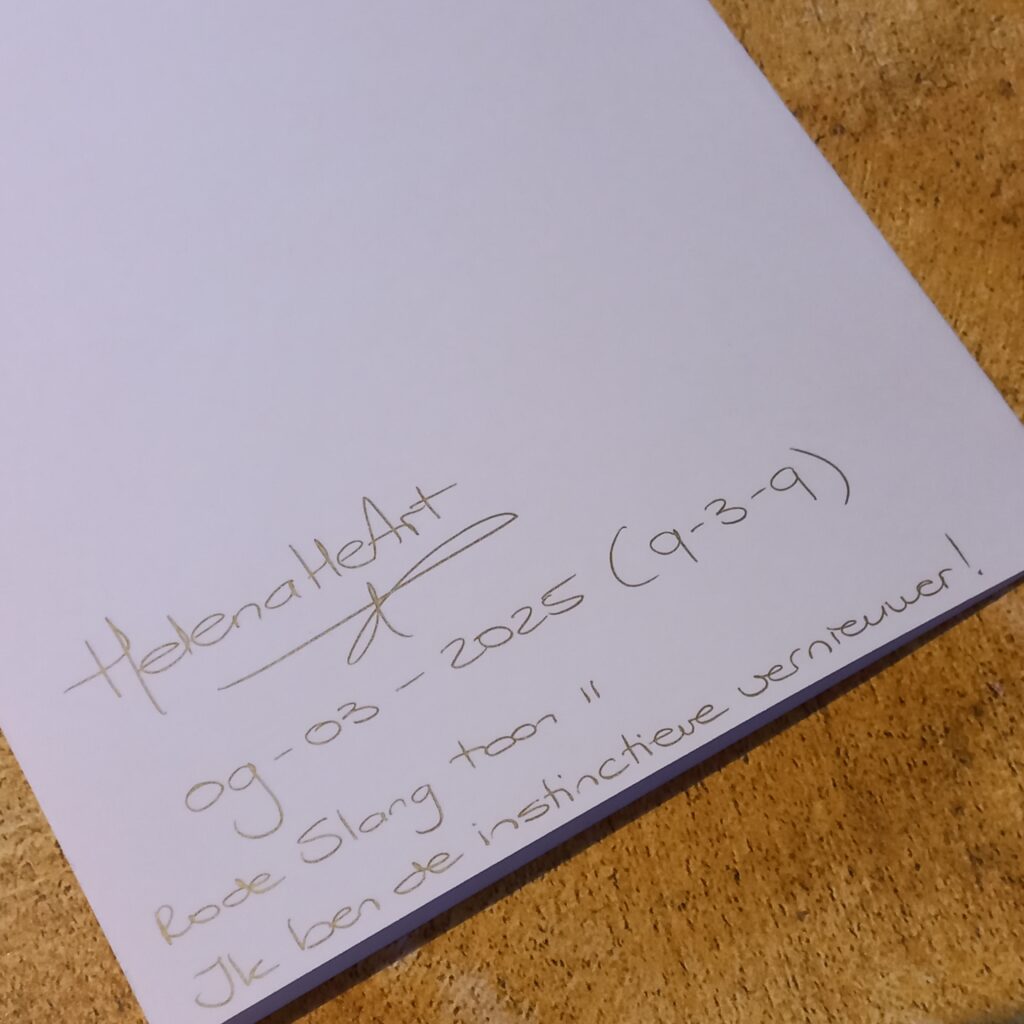 HelenaHeArt
09-03-2025 (9-3-9)
Rode Slang toon 11
Ik ben de instinctieve vernieuwer!